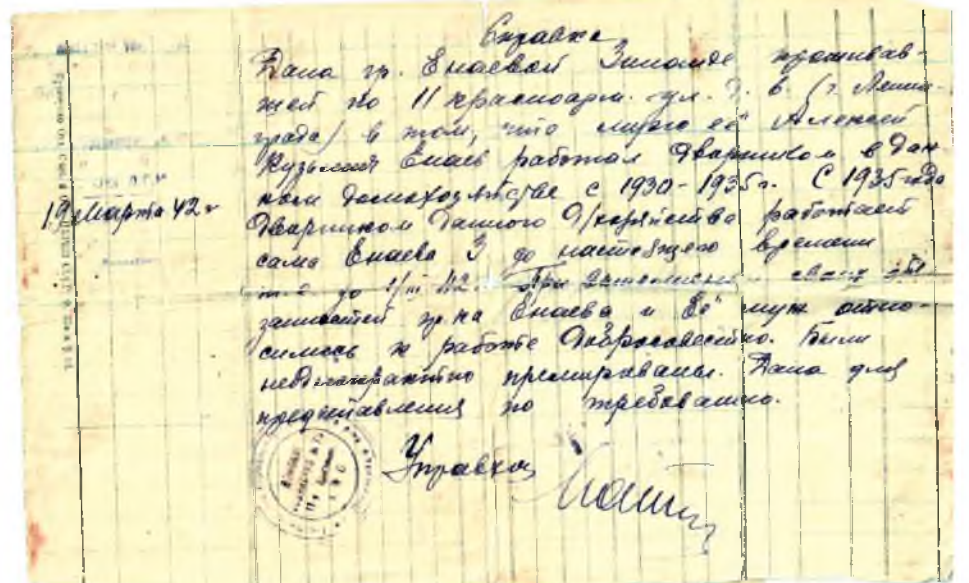 Справка
Дана гр. Енаевой Зинаиде проживав-
шей по 11 красноарм. ул. д. 6 (г. Ленин-
града) в том, что муж её Алексей
Кузьмич Енаев работал дворником в дан
ном домохозяйстве с 1930-1935г. С 1935 года
19 Марта 42 г
дворником данного д/хозяйства работает
сама Енаева З до настоящего времени
т.е. до 1/III 42. При выполнении своих обя
занностей гр-ка Енаева и её муж отно-
сились к работе добросовестно. Были
неоднократно премированы. Дана для
предоставления по требованию.
Управхоз